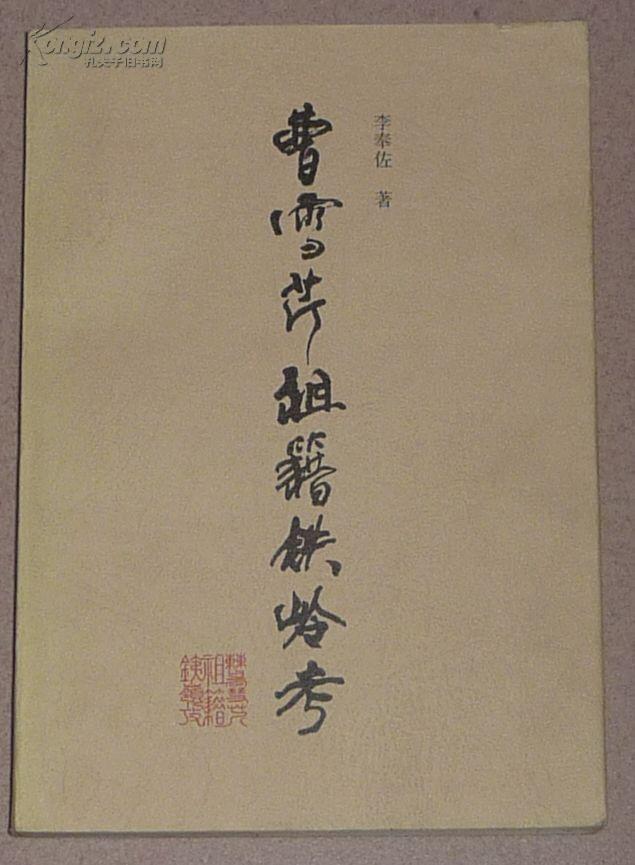 Kongfz.com
孔夫子旧书网
李奉佐 著
曹雪芹祖籍铁岭考